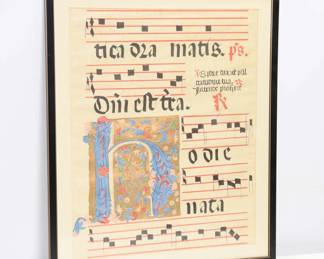 tica dra matis. ps.
Dñi est tr̃a. R
H
odie
nata